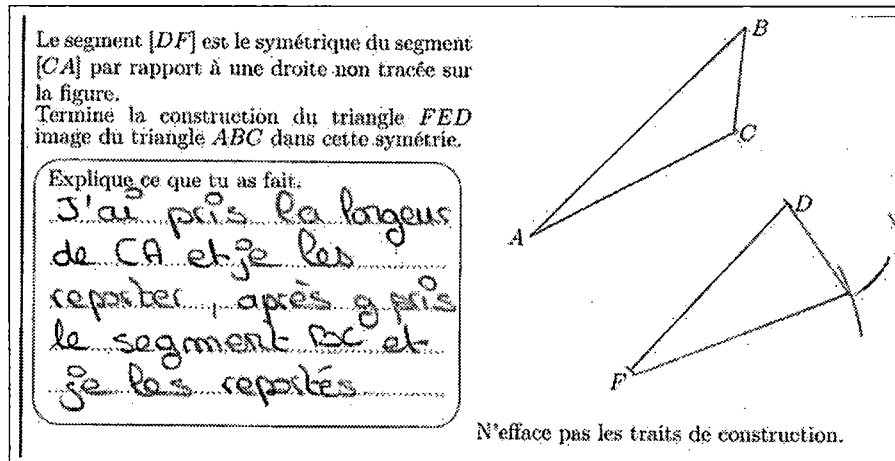 Le segment [DF] est le symétrique du segment
[CA] par rapport à une droite non tracée sur
la figure.
Termine la construction du triangle FED
image du triangle ABC dans cette symétrie.
Explique ce que tu as fait.
J'ai pris la longeur
de CA et je les
reporter, après g pris
le segment BC et
je les reportés
B
C
A
D
F
N'efface pas les traits de construction.